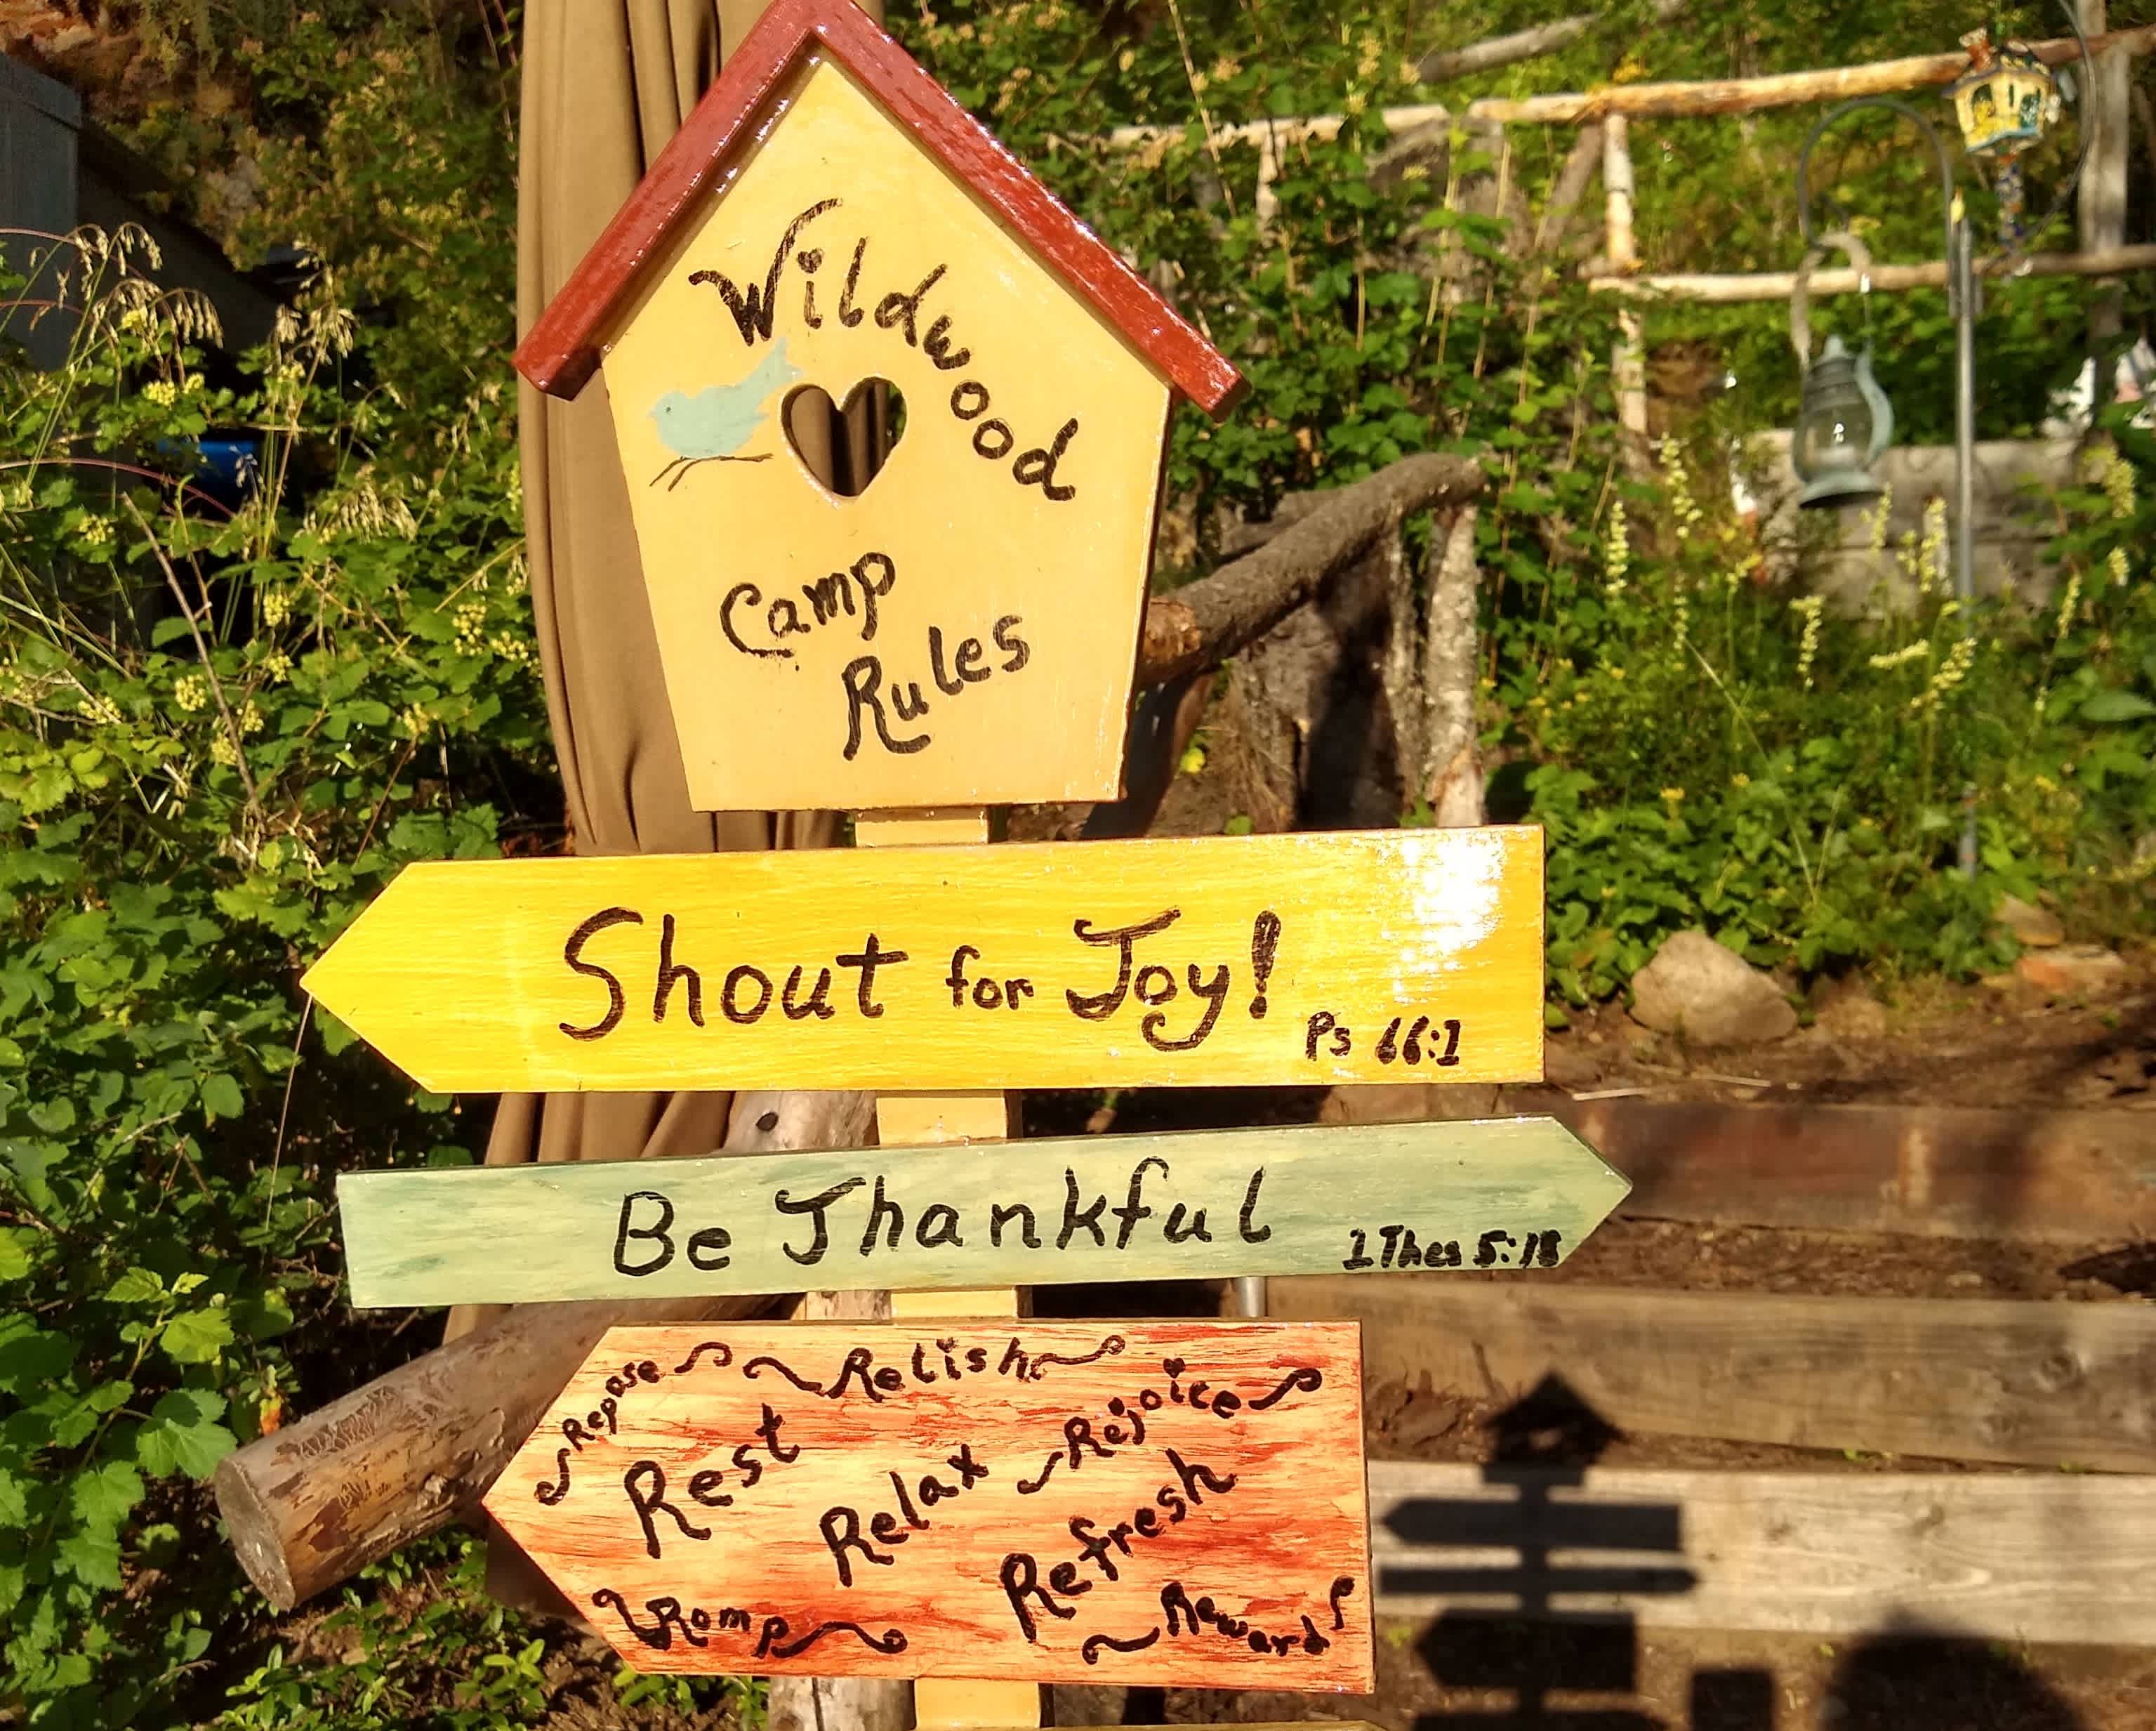 Wildwood
Camp
Rules
Shout for Joy!
Ps 66:1
Be Thankful
1 Thes 5:18
Repose
Relish
Rest
Relax
Rejoice
Refresh
Romp
Reward